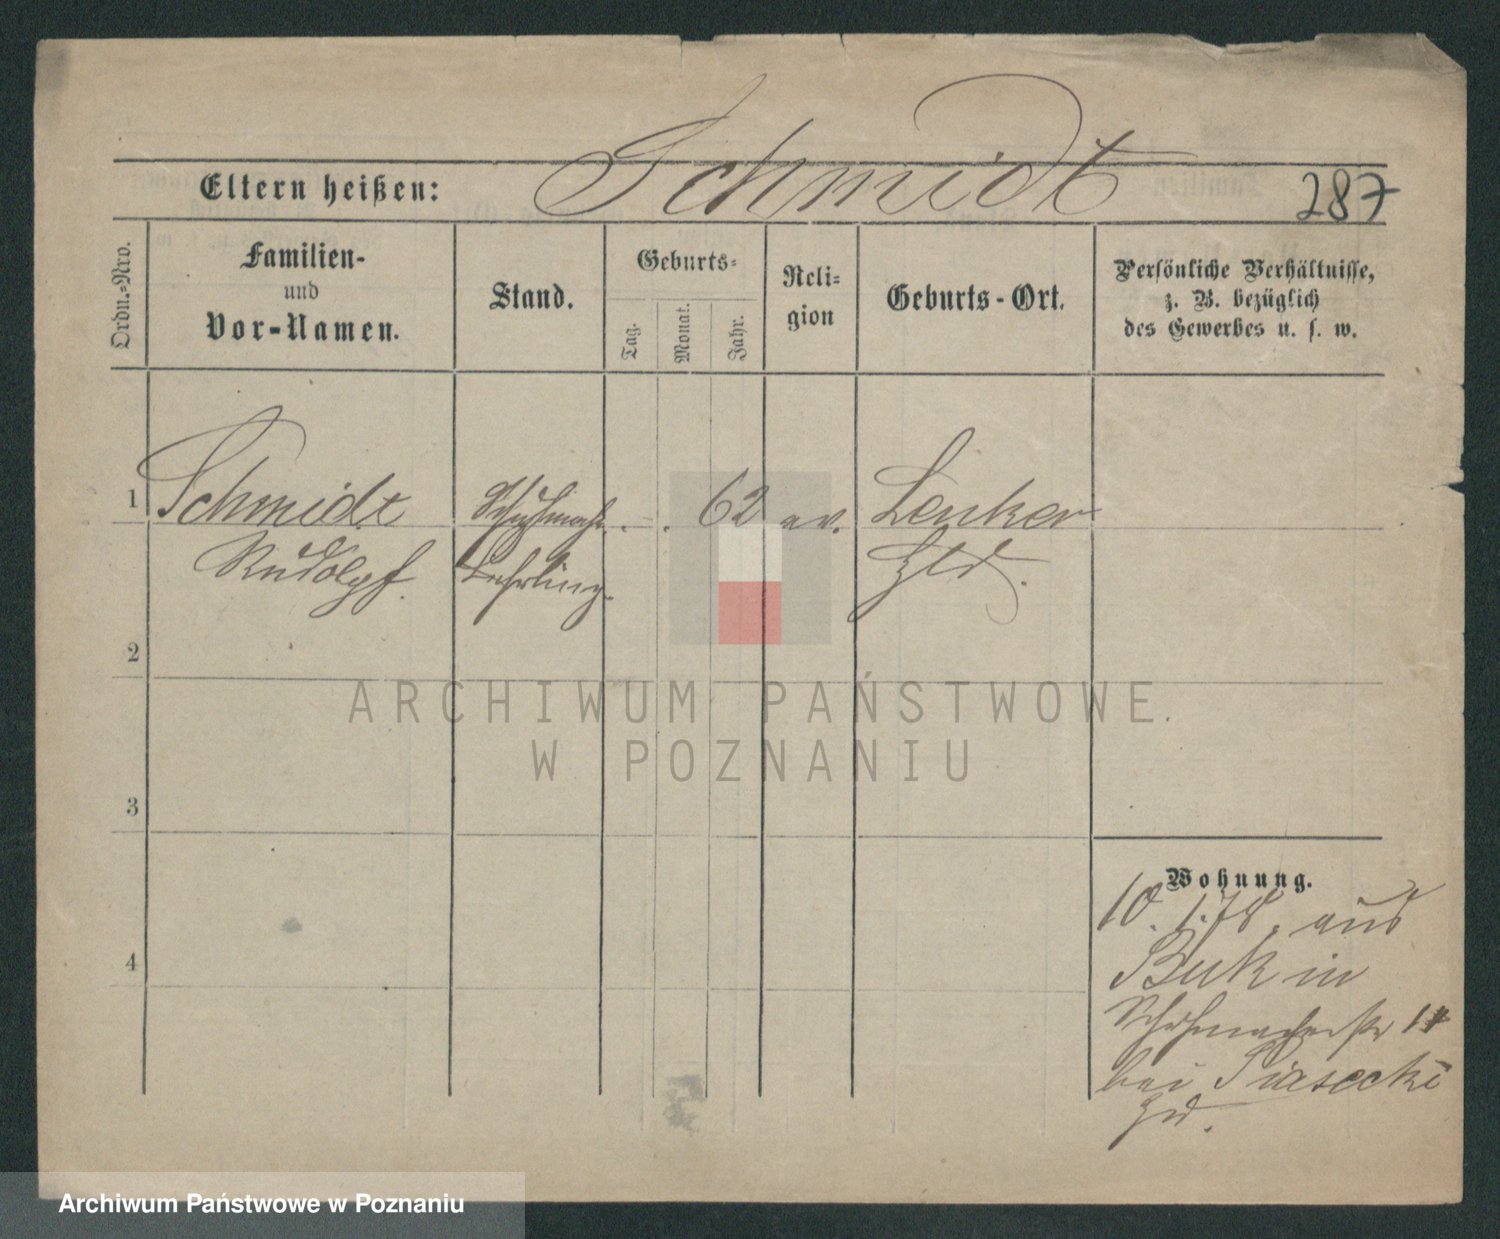 Schmidt
Eltern heißen:
287
Ordn.-Nro.
Familien-
und
Vor-Namen.
Stand.
Geburts-
Tag.
Monat.
Jahr.
Reli-
gion
Geburts-Ort.
Persönliche Verhältnisse,
z. B. bezüglich
des Gewerbes u. s. w.
1
Schmidt
Rudolph.
Schuhmach.
Lehrling.
62
ev.
2
3
4
Wohnung.
10. 1. 78. aus
Buk in
Schuhmacherstr
bei Piasecki
ARCHIWUM PAŃSTWOWE
W POZNANIU
Archiwum Państwowe w Poznaniu